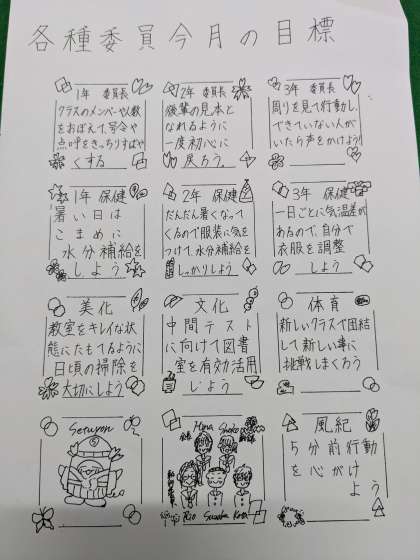 各種委員今月の目標
1年 委員長
クラスのメンバーや人数
をおぼえて、号令や
点呼をきっちりすばやく
くする
2年 委員長
後輩の見本と
なれるように
一度初心に
戻ろう。
3年 委員長
周りを見て行動し、
できていない人が
いたら声をかけよう!
1年 保健
暑い日は
こまめに
水分補給を
しよう
2年 保健
だんだん暑くなって
くるので服装に気を
つけて、水分補給を
しっかりしよう
3年 保健
一日ごとに気温差が
あるので、自分で
衣服を調整
しよう
美化
教室をキレイな状
態にたもてるように
日頃の掃除を
大切にしよう
文化
中間テスト
に向けて図書
室を有効活用
しよう
体育
新しいクラスで団結
して新しい事に
挑戦しまくろう
Hina
Rio
風紀
5分前行動
を心がけ
よう